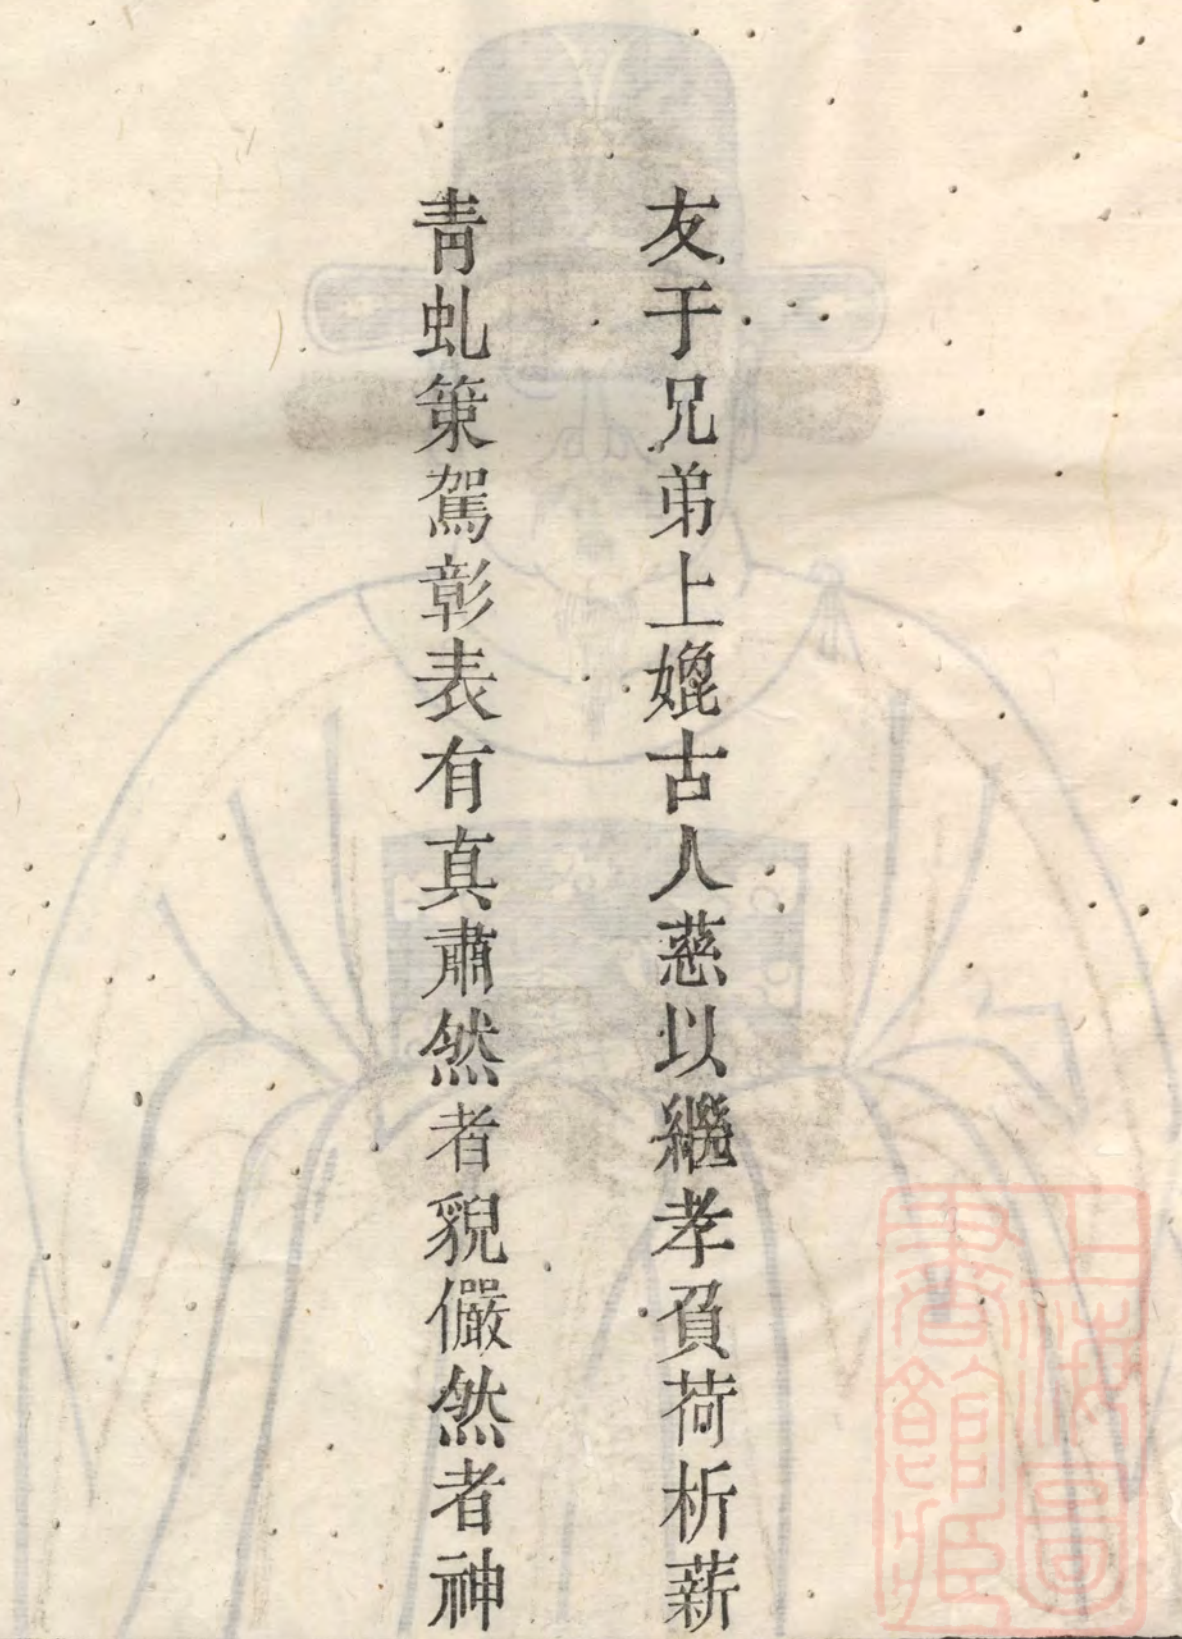 友于兄弟上媲古人慈以繼孝負荷析薪
青虬策駕彰表有真肅然者貌儼然者神
上海圖書館藏